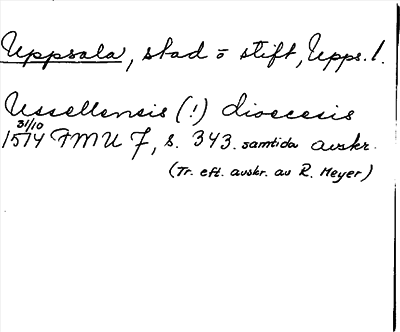 Uppsala, stad o stift, Upps. l.
Ussellensis (!) dioecesis
31/10
1514 FMU 7, s. 343. samtida avskr.
(Tr. eft. avskr. av R. Meyer)